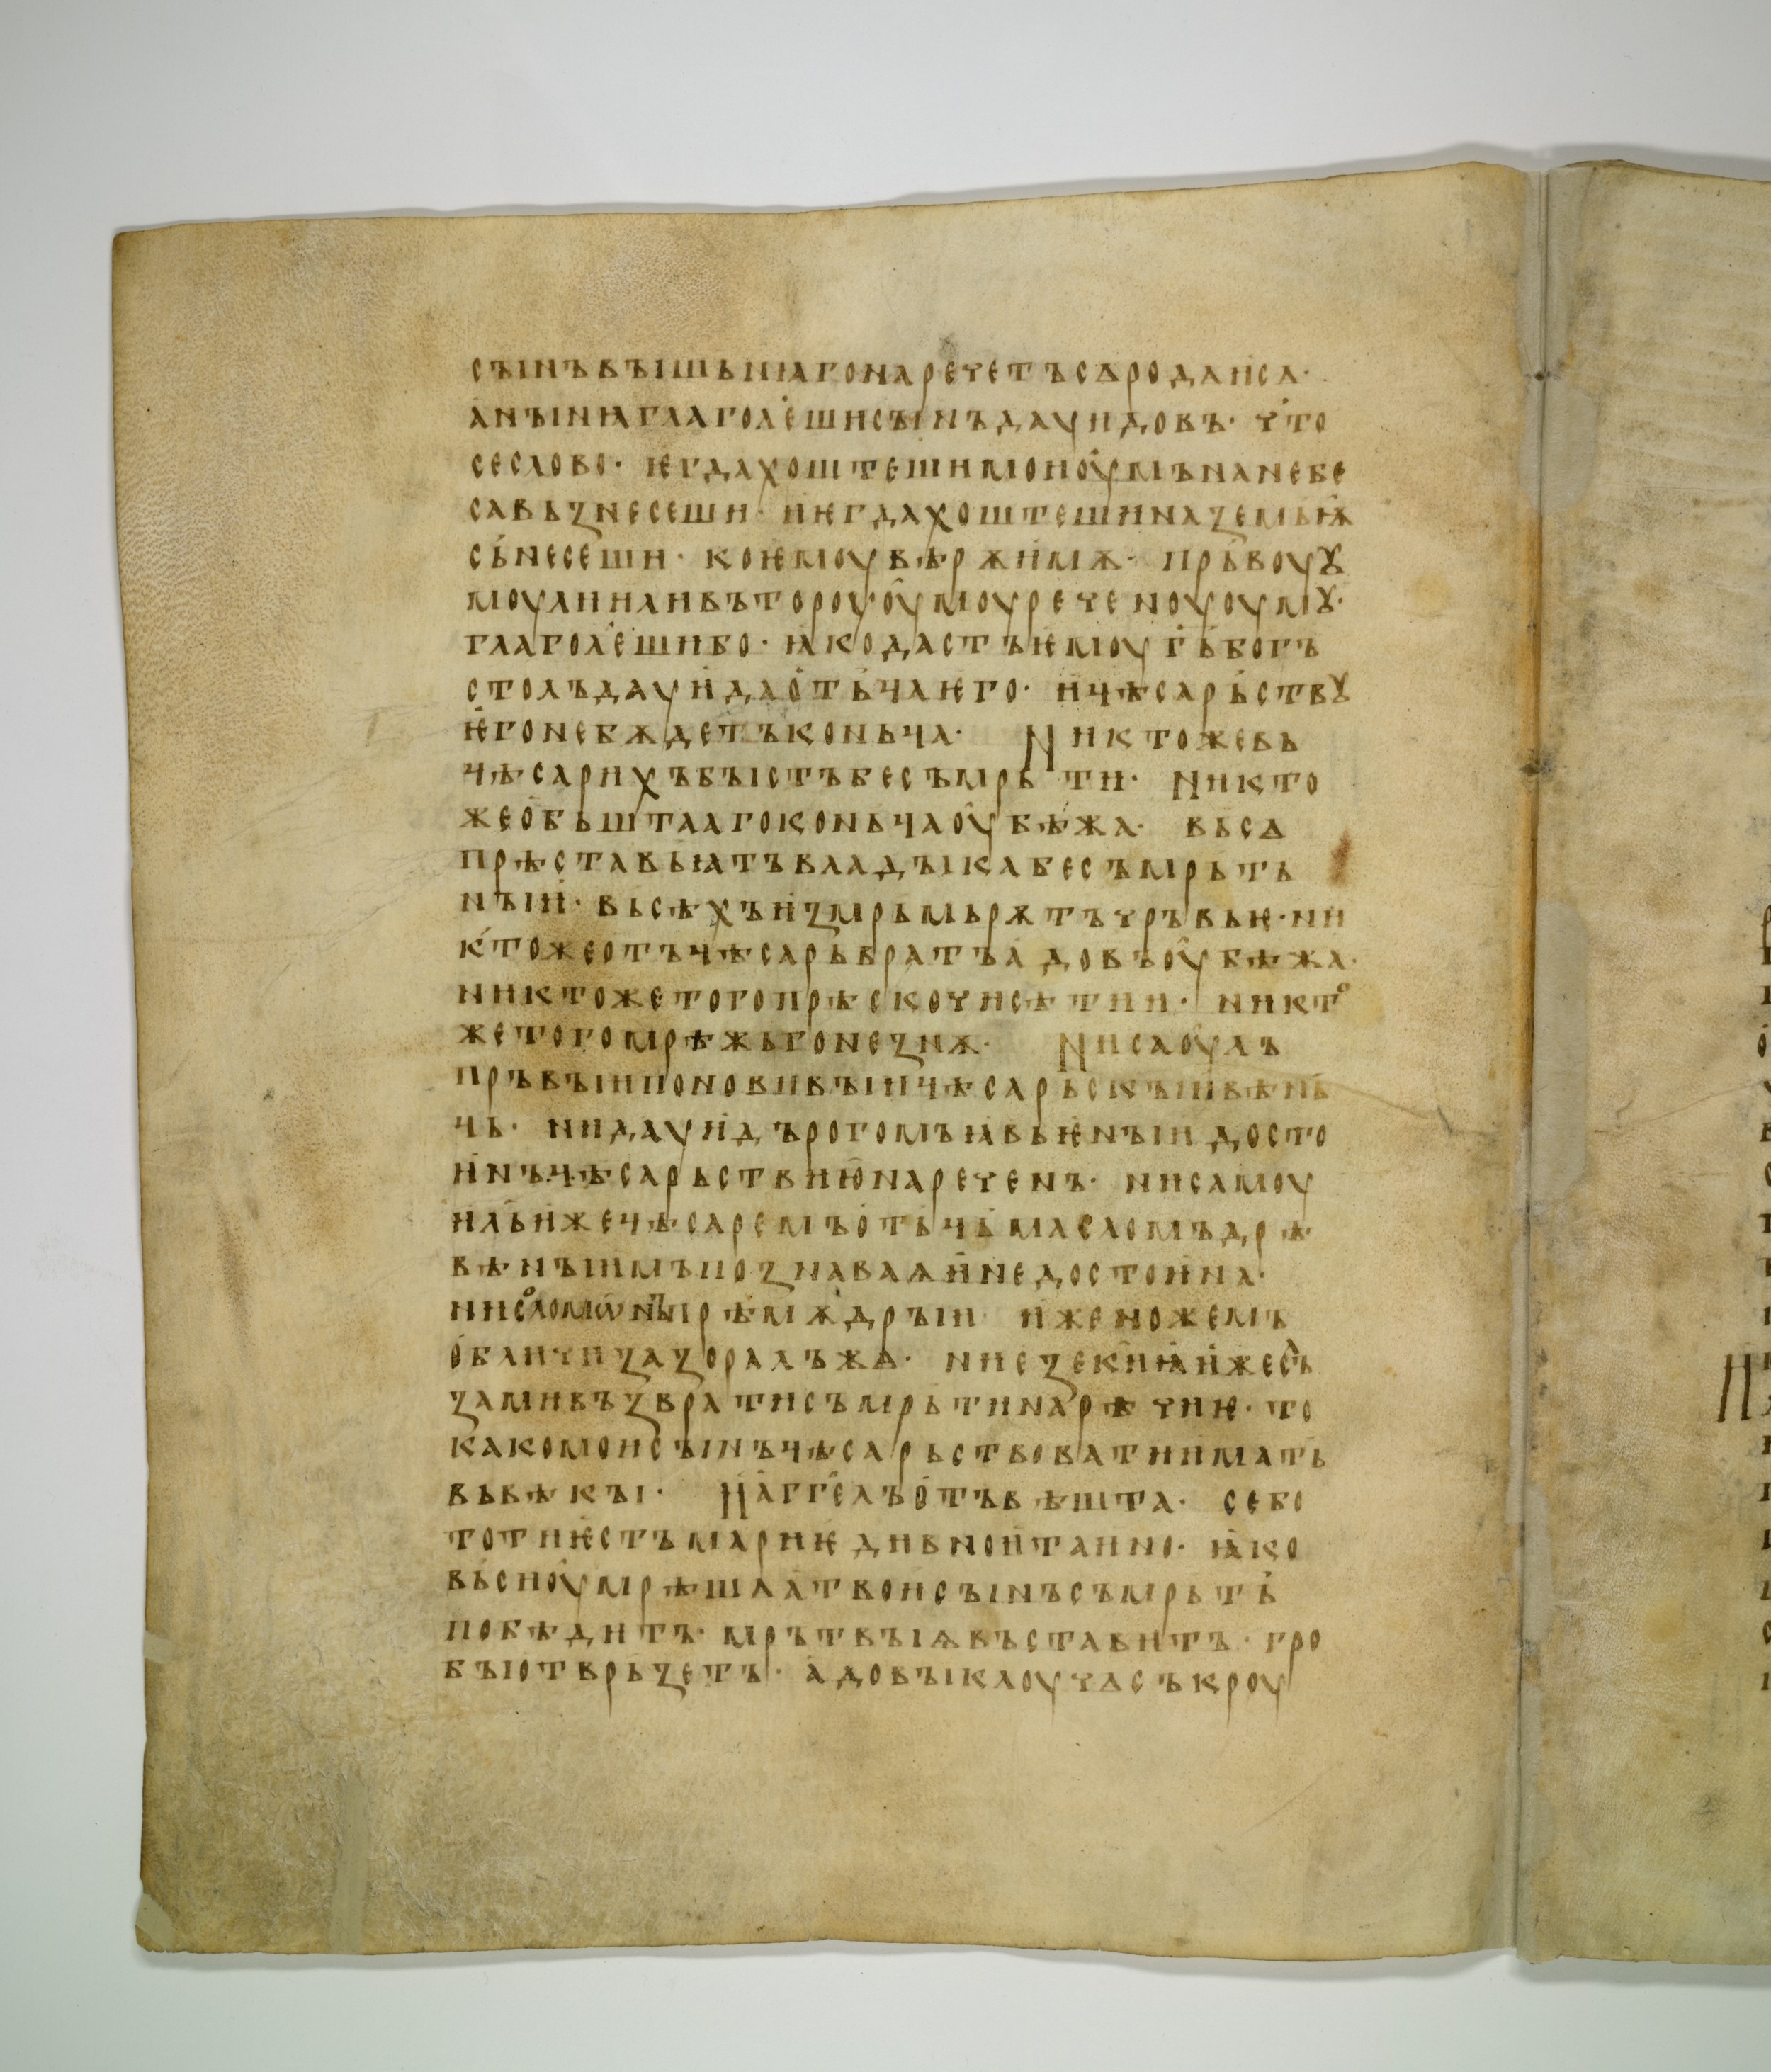 сꙑнъвꙑшьнꙗгонаречетъсѧродаиса·
анꙑнꙗглаголешисꙑнъдаѵидовъ· что
сеслово· ѥгдахоштешимоиоумънанебе
савьꙁнесеши· иѥгдахоштешинаꙁемьѭ
сънесеши· коѥмоувѣрѫимѫ· прьвоуꙋ
моулииливътороуоумоуреченоуоумꙋ·
глаголешибо· ꙗкодастъѥмоугьбогъ
столъдаѵидаотьцаѥго· ицѣсарьствꙋ
ѥгонебѫдетъконьца· Никтожевь
цѣсарихъбꙑстъбесъмрьти· Никто
жеобьштаагоконьцаоубѣжа· вьсѧ
прѣставьꙗтъвладꙑкабесъмрьть
нꙑи· вьсѣхъиꙁмрьмьрѫтъчръвьѥ· ни
ктожеотъцѣсарьвратъадовъоубѣжа·
никтожетогопрѣскочисѣтии· никто
жетогомрѣжьгонеꙁнѫ· Нисаоулъ
пръвꙑипоновивꙑицѣсарьскꙑивѣнь
ць· нидаѵидърогомъꙗвьѥнꙑидосто
инъцѣсарьствиюнареченъ· нисамоу
ильижецѣсаремъотьцьмасломъдрѣ
вѣнꙑимъпоꙁнаваѧинедостоина·
нисоломѡнꙑпрѣмѫдрꙑи иженожемъ
обличиꙁаꙁоралъжѧ· ниеꙁекиꙗижесъ
ꙁамивъꙁвратисъмрьтинарѣчиѥ· то
какомоисꙑнъцѣсарьствоватииматъ
вьвѣкꙑ· Иаггелъотъвѣшта· себо
тотиѥстъмариѥдивноитаино· ꙗко
вьсиоумрѣшаатвоисꙑнъсъмрьть
побѣдитъ· мрътвꙑѩвъставитъ· гро
бꙑотврьꙁетъ· адовꙑключѧсъкроу